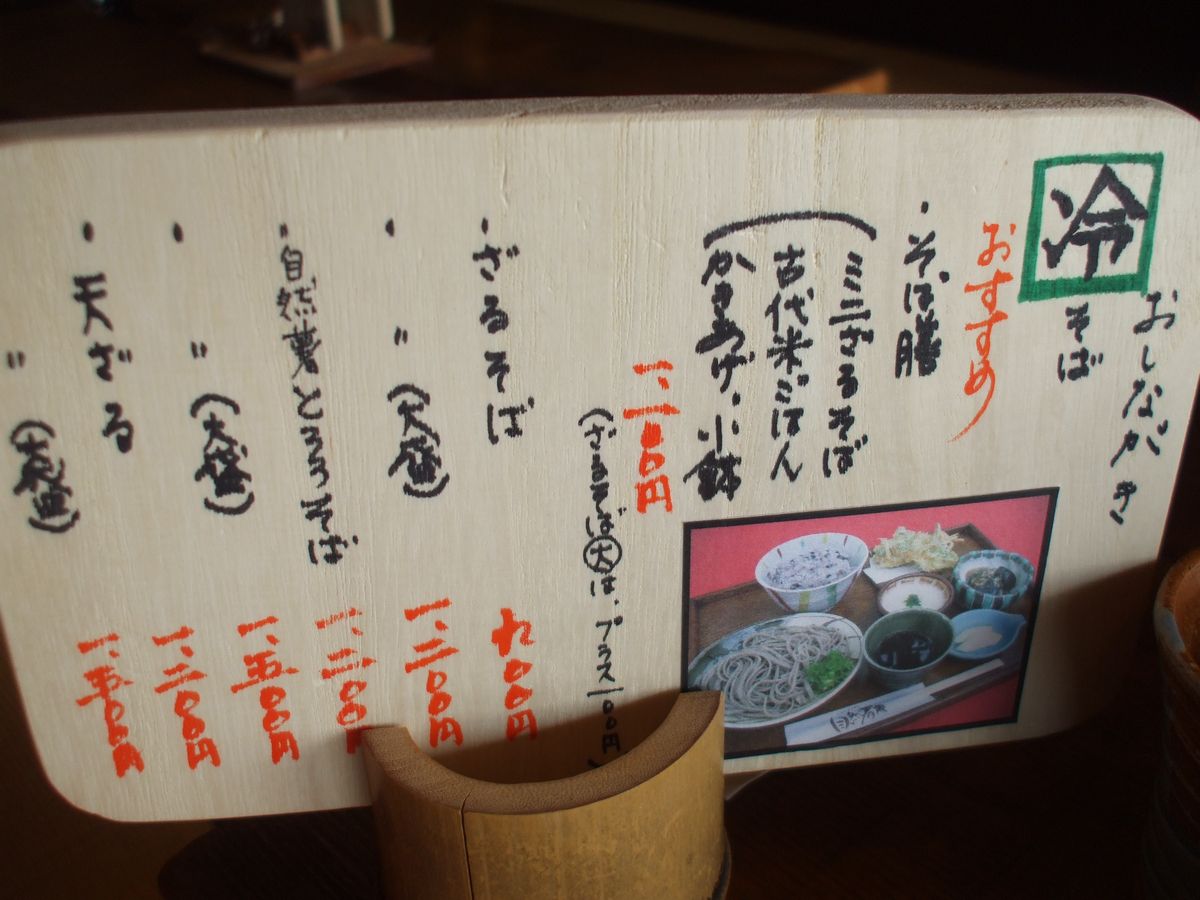 おしながき
冷そば
おすすめ
・そば膳
(ミニざるそば
古代米ごはん
かきあげ、小鉢
一、二〇〇円
(ざるそば大は、プラス100円)
・ざるそば 九〇〇円
・〃(大盛) 一、二〇〇円
・自然薯とろろそば 一、二〇〇円
・〃(大盛) 一、五〇〇円
・天ざる 一、二〇〇円
〃(大盛) 一、五〇〇円